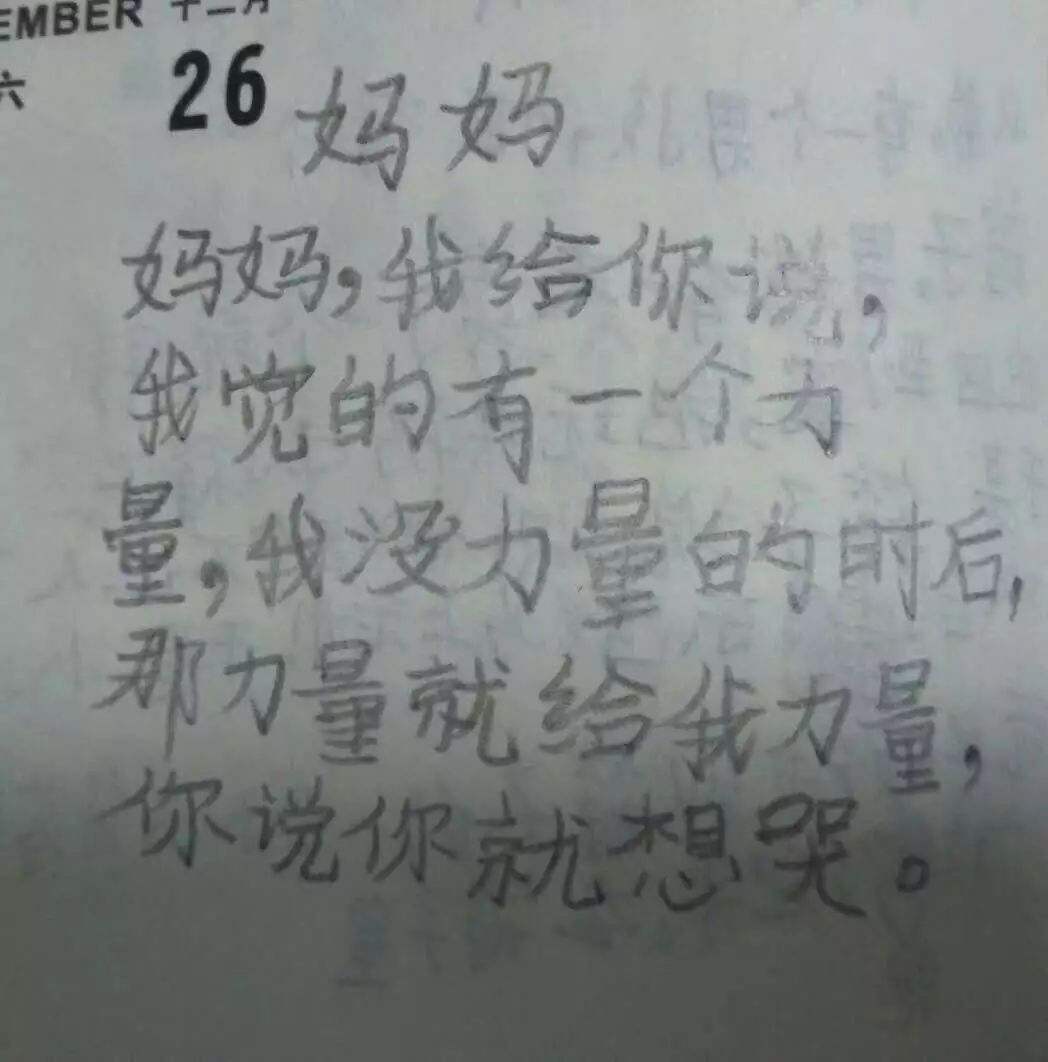 EMBER 十二月
六 26 妈妈
妈妈，我给你说，
我觉的有一个力
量，我没力量的时后，
那力量就给我力量，
你说你就想哭。